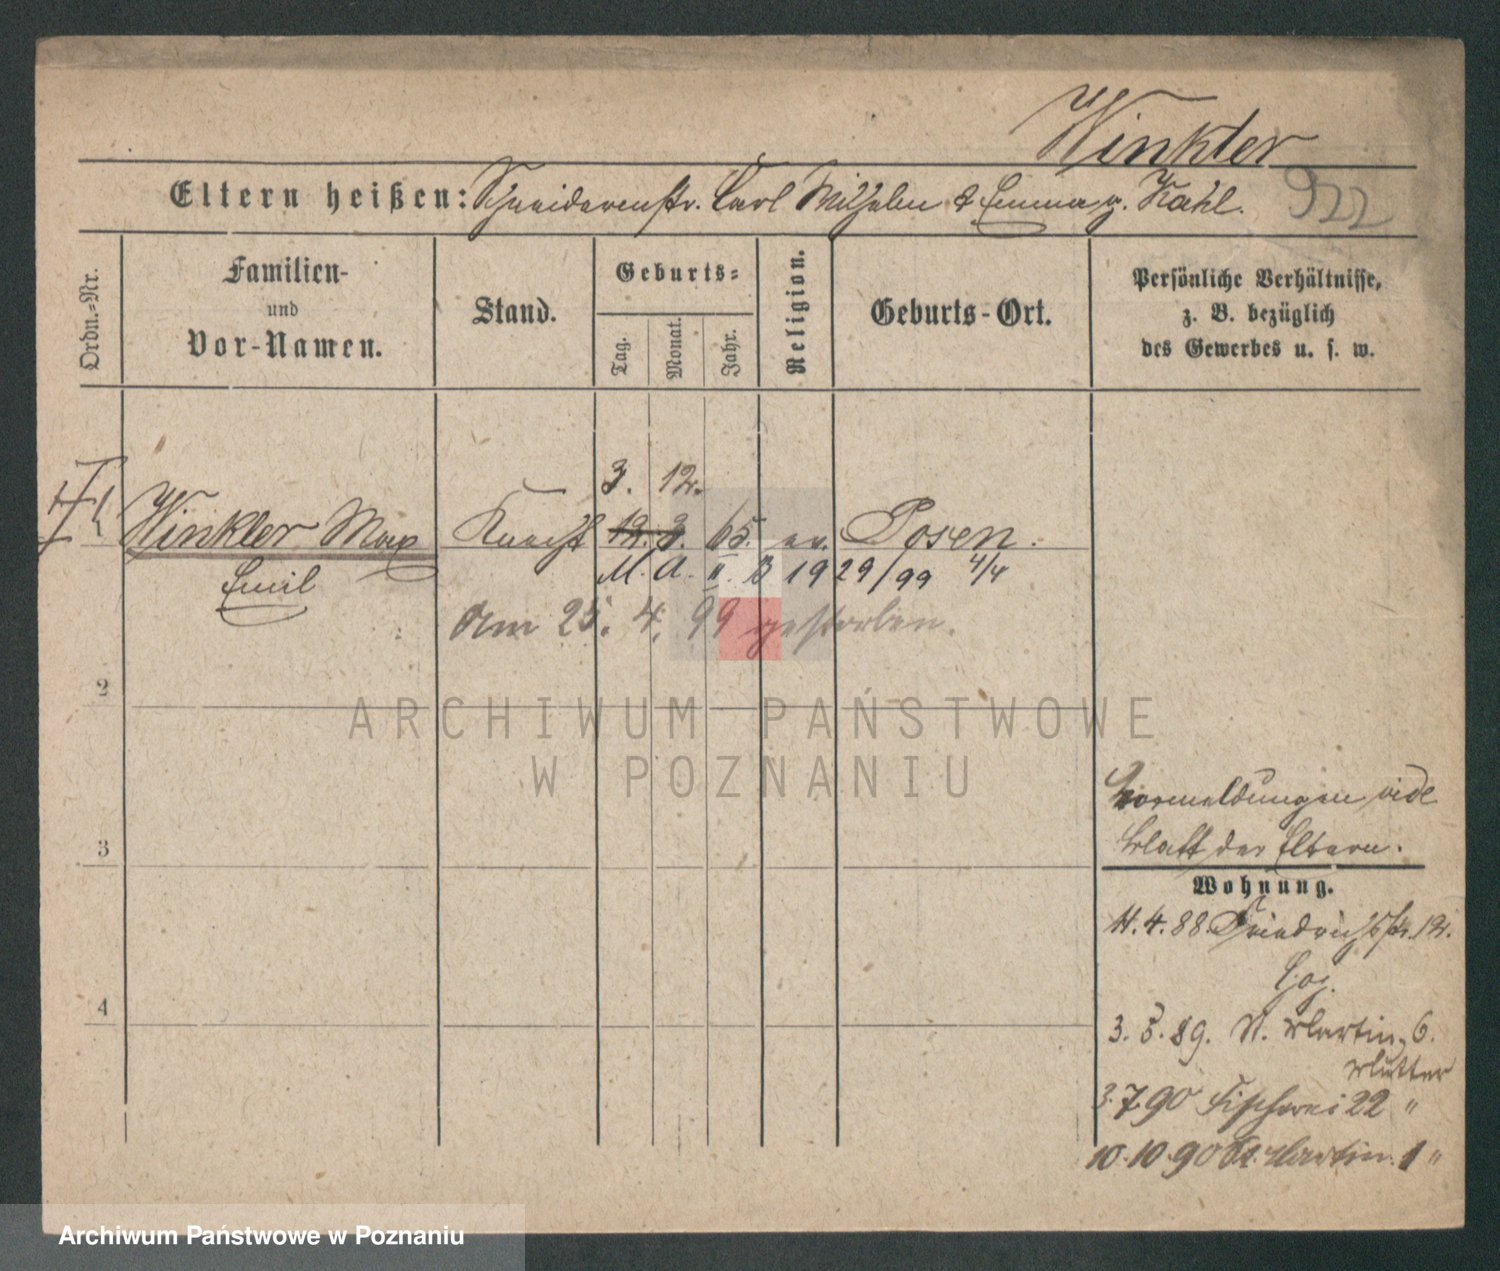 Winkler
Eltern heißen: Schneidermstr. Carl Wilhelm & Emma g. Kahl.
922
Ordn.-Nr.
Familien-
und
Vor-Namen.
Stand.
Geburts-
Tag.
Monat.
Jahr.
Religion.
Geburts-Ort.
Persönliche Verhältnisse,
z. B. bezüglich
des Gewerbes u. s. w.
3. 12.
Winkler Max Knecht 12. 3. 65. ev. Posen.
Emil
M. A. II. B 1929/99 4/4
Am 25. 4. 99 gestorben.
2
ARCHIWUM PAŃSTWOWE
W POZNANIU
Vormeldungen vide
Blatt der Eltern.
3
Wohnung.
11. 4. 88. Friedrichstr. 12.
4
3. 5. 89. St. Martin 6.
Mutter
3.7.90 Fischerei 22 "
10.10.90 St. Martin 1 "
Archiwum Państwowe w Poznaniu